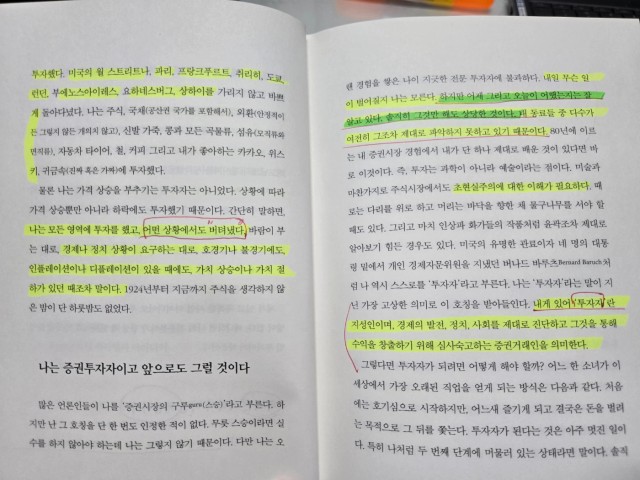 투자했다. 미국의 월 스트리트나, 파리, 프랑크푸르트, 취리히, 도쿄,
런던, 부에노스아이레스, 요하네스버그, 상하이를 가리지 않고 바쁘
게 돌아다녔다. 나는 주식, 국채(공산권 국가를 포함해서), 외환(안정적이
든 그렇지 않든 개의치 않고), 신발 가죽, 콩과 모든 곡물류, 섬유(모직류와
면직류), 자동차 타이어, 철, 커피 그리고 내가 좋아하는 카카오, 위스
키, 귀금속(진짜 혹은 가짜)에 투자했다.
물론 나는 가격 상승을 부추기는 투자자는 아니었다. 상황에 따라
가격 상승뿐만 아니라 하락에도 투자했기 때문이다. 간단히 말하면,
나는 모든 영역에 투자를 했고, 어떤 상황에서도 버텨냈다. 바람이 부
는 대로, 경제나 정치 상황이 요구하는 대로, 호경기나 불경기에도,
인플레이션이나 디플레이션이 있을 때에도, 가치 상승이나 가치 절
하가 있던 때조차 말이다. 1924년부터 지금까지 주식을 생각하지 않
은 밤이 단 하룻밤도 없었다.
나는 증권투자자이고 앞으로도 그럴 것이다
많은 언론인들이 나를 '증권시장의 구루guru(스승)'라고 부른다. 하
지만 난 그 호칭을 단 한 번도 인정한 적이 없다. 무릇 스승이라면 실
수를 하지 않아야 하는데 나는 그렇지 않기 때문이다. 다만 나는 오
랜 경험을 쌓은 나이 지긋한 전문 투자자에 불과하다. 내일 무슨 일
이 벌어질지 나는 모른다. 하지만 어제 그리고 오늘이 어땠는지는 잘
알고 있다. 솔직히 그것만 해도 상당한 것이다. 왜 동료들 중 다수가
여전히 그조차 제대로 파악하지 못하고 있기 때문이다. 80년에 이르
는 내 증권시장 경험에서 내가 단 하나 제대로 배운 것이 있다면 바
로 이것이다. 즉, 투자는 과학이 아니라 예술이라는 점이다. 미술과
마찬가지로 주식시장에서도 초현실주의에 대한 이해가 필요하다. 때
로는 다리를 위로 하고 머리는 바닥을 향한 채 물구나무를 서야 할
때도 있다. 그리고 마치 인상파 화가들의 작품처럼 윤곽조차 제대로
알아보기 힘든 경우도 있다. 미국의 유명한 관료이자 네 명의 대통
령 밑에서 개인 경제자문위원을 지냈던 버나드 바루츠Bernard Baruch처
럼 나 역시 스스로를 '투자자'라고 부른다. 나는 '투자자'라는 말이 지
닌 가장 고상한 의미로 이 호칭을 받아들인다. 내게 있어 '투자자'란
지성인이며, 경제의 발전, 정치, 사회를 제대로 진단하고 그것을 통해
수익을 창출하기 위해 심사숙고하는 증권거래인을 의미한다.
그렇다면 투자자가 되려면 어떻게 해야 할까? 어느 한 소녀가 이
세상에서 가장 오래된 직업을 얻게 되는 방식은 다음과 같다. 처음
에는 호기심으로 시작하지만, 어느새 즐기게 되고 결국은 돈을 벌려
는 목적으로 그 뒤를 쫓는다. 투자자가 된다는 것은 아주 멋진 일이
다. 특히 나처럼 두 번째 단계에 머물러 있는 상태라면 말이다. 솔직